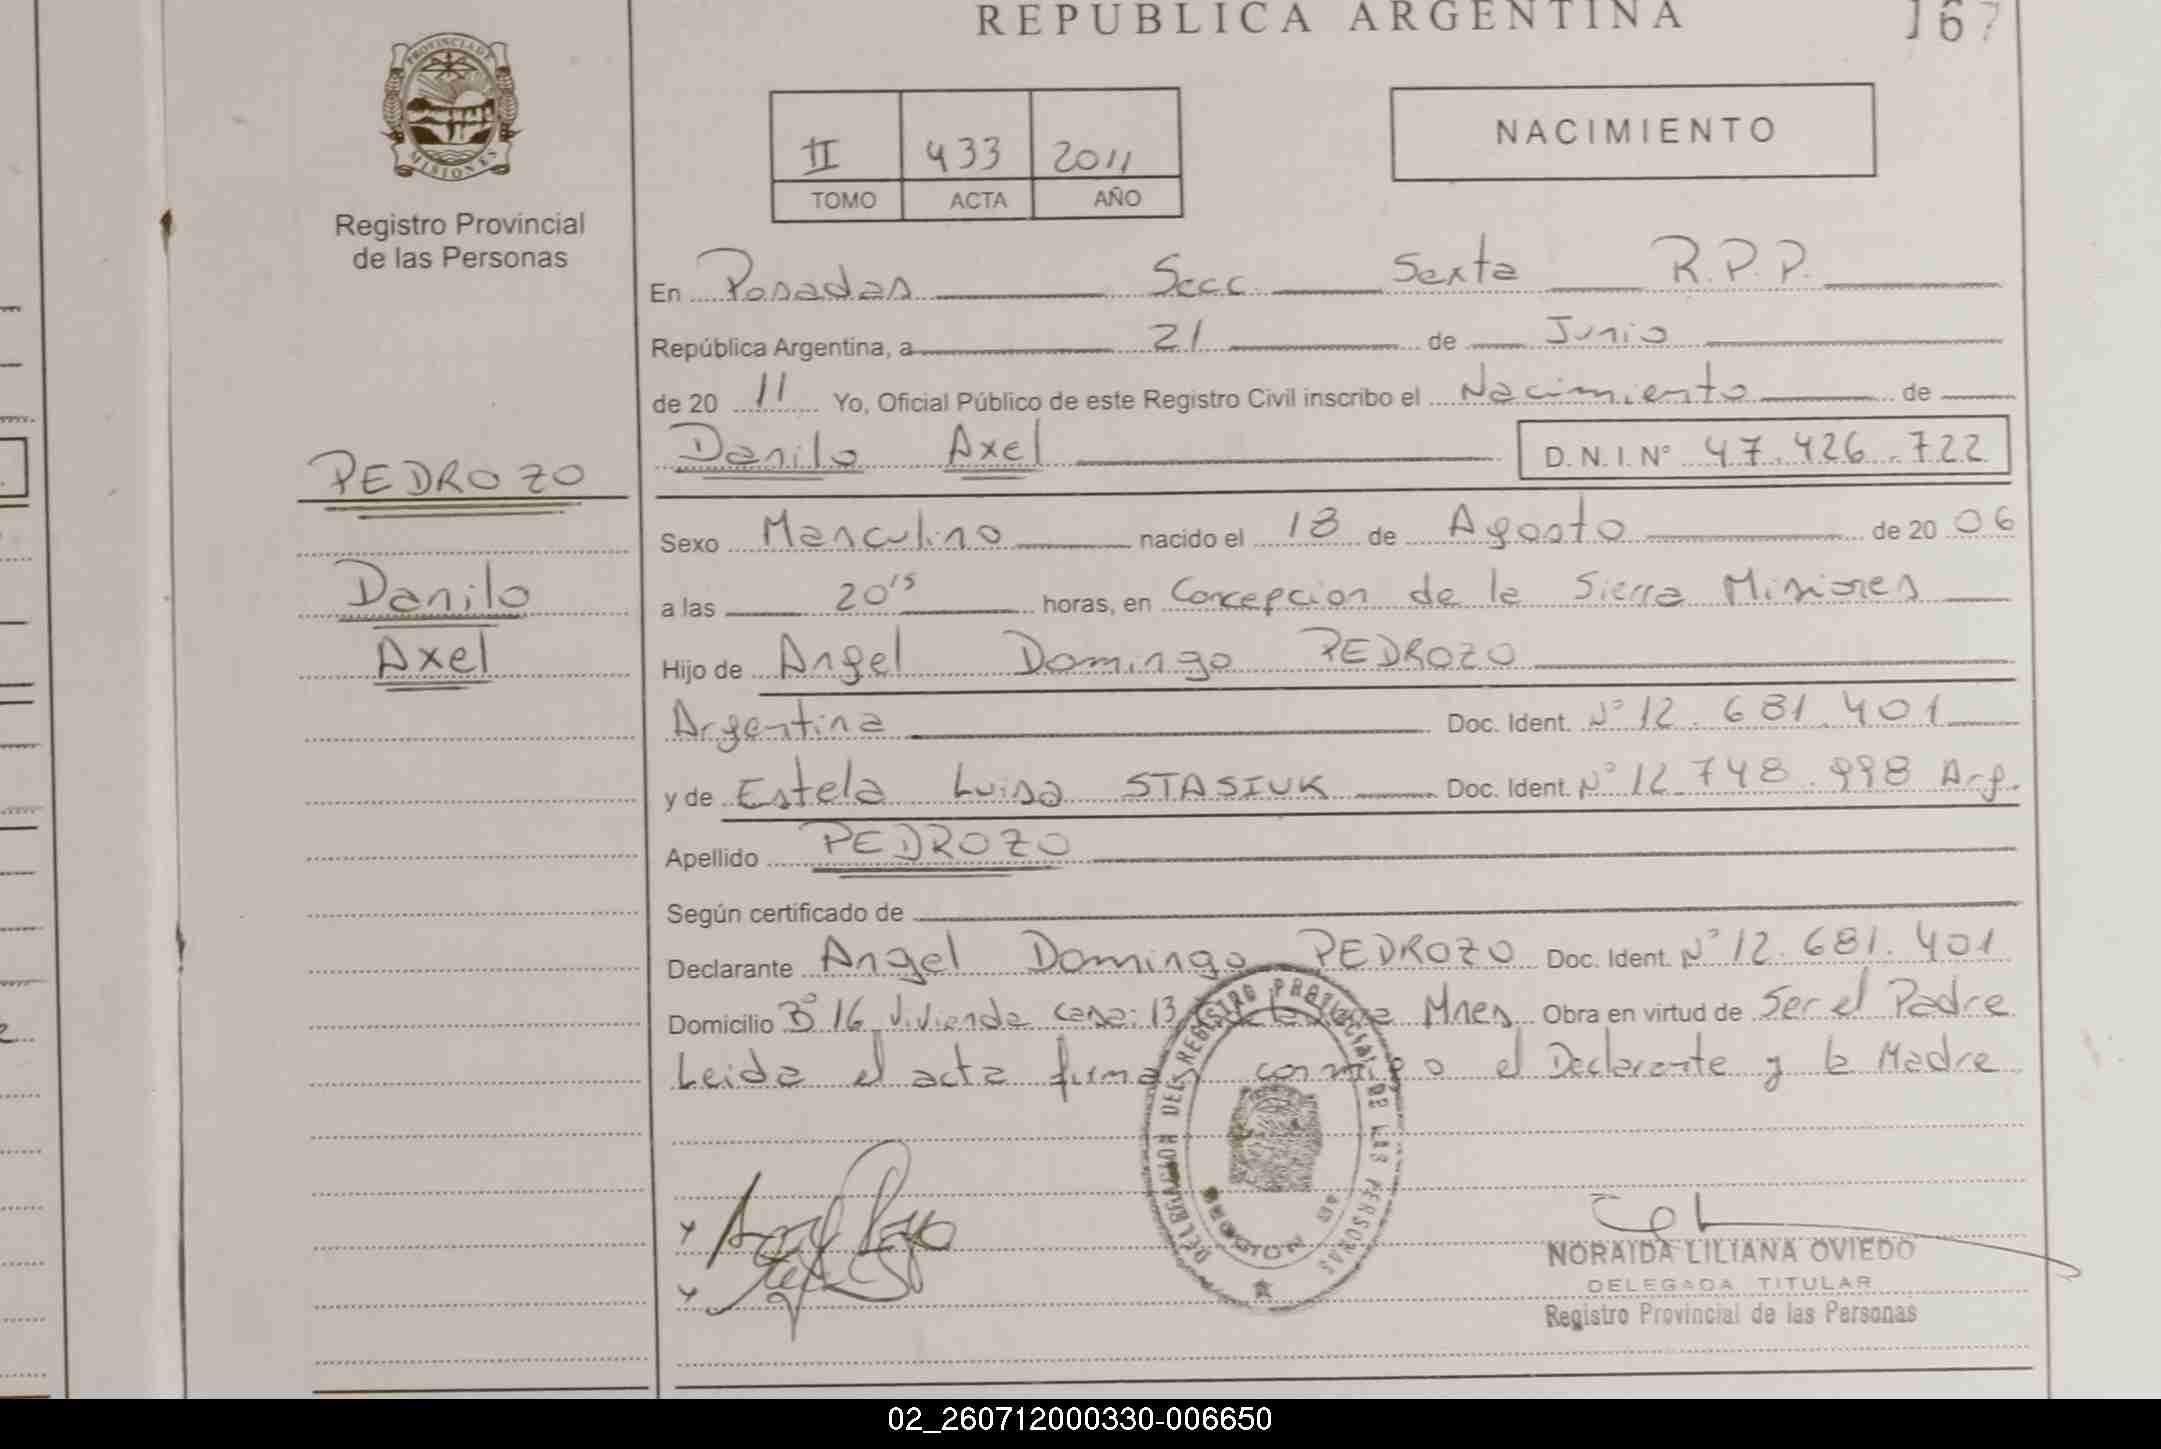 REPUBLICA ARGENTINA
167
PROVINCIA DE
MISIONES
Registro Provincial
de las Personas
II 433 2011
TOMO ACTA AÑO
NACIMIENTO
En Posadas Secc Sexta R.P.P.
República Argentina, a 21 de Junio
de 20 11 Yo, Oficial Público de este Registro Civil inscribo el Nacimiento de
Danilo Axel D.N.I. Nº 47.426.722
PEDROZO
Danilo
Axel
Sexo Masculino nacido el 18 de Agosto de 20 06
a las 20 15 horas, en Concepcion de la Sierra Misiones
Hijo de Angel Domingo PEDROZO
Argentina Doc. Ident. Nº 12.681.401
y de Estela Luisa STASIUK Doc. Ident. Nº 12.748.998 Arg.
Apellido PEDROZO
Según certificado de
Declarante Angel Domingo PEDROZO Doc. Ident. Nº 12.681.401
Domicilio Bº 16 Vivienda casa: 13 Mnes Obra en virtud de Ser el Padre
Leida el acta firman conmigo el Declarante y la Madre
DELEGACION DEL REGISTRO PROVINCIAL DE LAS PERSONAS
SECCION
NORAIDA LILIANA OVIEDO
DELEGADA TITULAR
Registro Provincial de las Personas
02_260712000330-006650